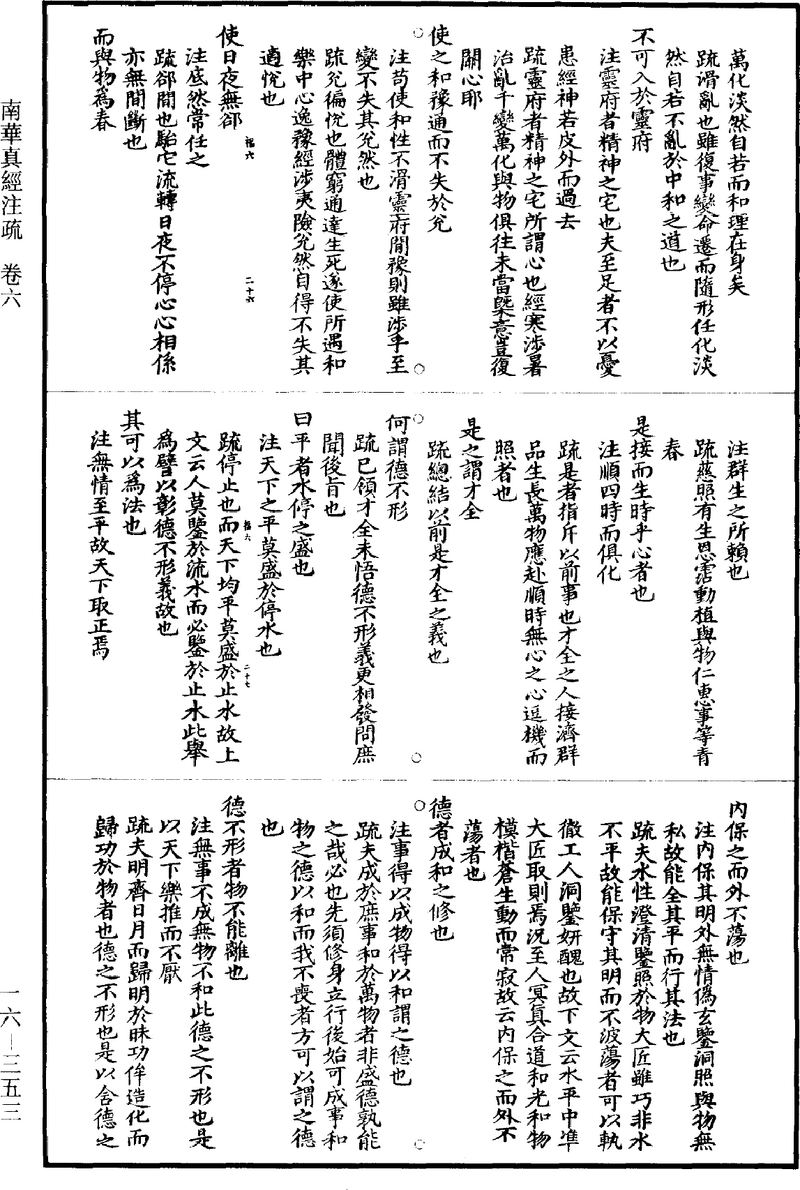 南華真經注疏　卷六
萬化淡然自若而和理在身矣
疏滑亂也雖復事變命遷而隨形任化淡
然自若不亂於中和之道也
不可入於靈府
注靈府者精神之宅也夫至足者不以憂
患經神若皮外而過去
疏靈府者精神之宅所謂心也經寒涉暑
治亂千變萬化與物俱往未當槩意豈復
關心耶
使之和豫通而不失於兊
注苟使和性不滑靈府閒豫則雖涉乎至
變不失其兊然也
疏兊徧悅也體窮通達生死遂使所遇和
樂中心逸豫經涉夷險兊然自得不失其
適悅也
使日夜無郤
福六
二十六
注㡳然常任之
疏郤間也駘它流轉日夜不停心心相係
亦無間斷也
而與物爲春
注群生之所賴也
疏慈照有生恩霑動植與物仁惠事等青
春
是接而生時乎心者也
注順四時而俱化
疏是者指斥以前事也才全之人接濟群
品生長萬物應赴順時無心之心逗機而
照者也
是之謂才全
疏總結以前是才全之義也
何謂德不形
疏已領才全未悟德不形義更相發問庶
聞後旨也
曰平者水停之盛也
注天下之平莫盛於停水也
疏停止也而天下均平莫盛於止水故上
福六
二十七
文云人莫鑒於流水而必鑒於止水此舉
爲譬以彰德不形義故也
其可以爲法也
注無情至平故天下取正焉
內保之而外不蕩也
注內保其明外無情僞玄鑒洞照與物無
私故能全其平而行其法也
疏夫水性澄清鑒照於物大匠雖巧非水
不平故能保守其明而不波蕩者可以軌
徹工人洞鑒妍醜也故下文云水平中準
大匠取則焉況至人冥真合道和光和物
模楷蒼生動而常寂故云內保之而外不
蕩者也
德者成和之修也
注事得以成物得以和謂之德也
疏夫成於庶事和於萬物者非盛德孰能
之哉必也先須修身立行後始可成事和
物之德以和而我不喪者方可以謂之德
也
德不形者物不能離也
注無事不成無物不和此德之不形也是
以天下樂推而不厭
疏夫明齊日月而歸明於昧功侔造化而
歸功於物者也德之不形也是以含德之
一六—三五三